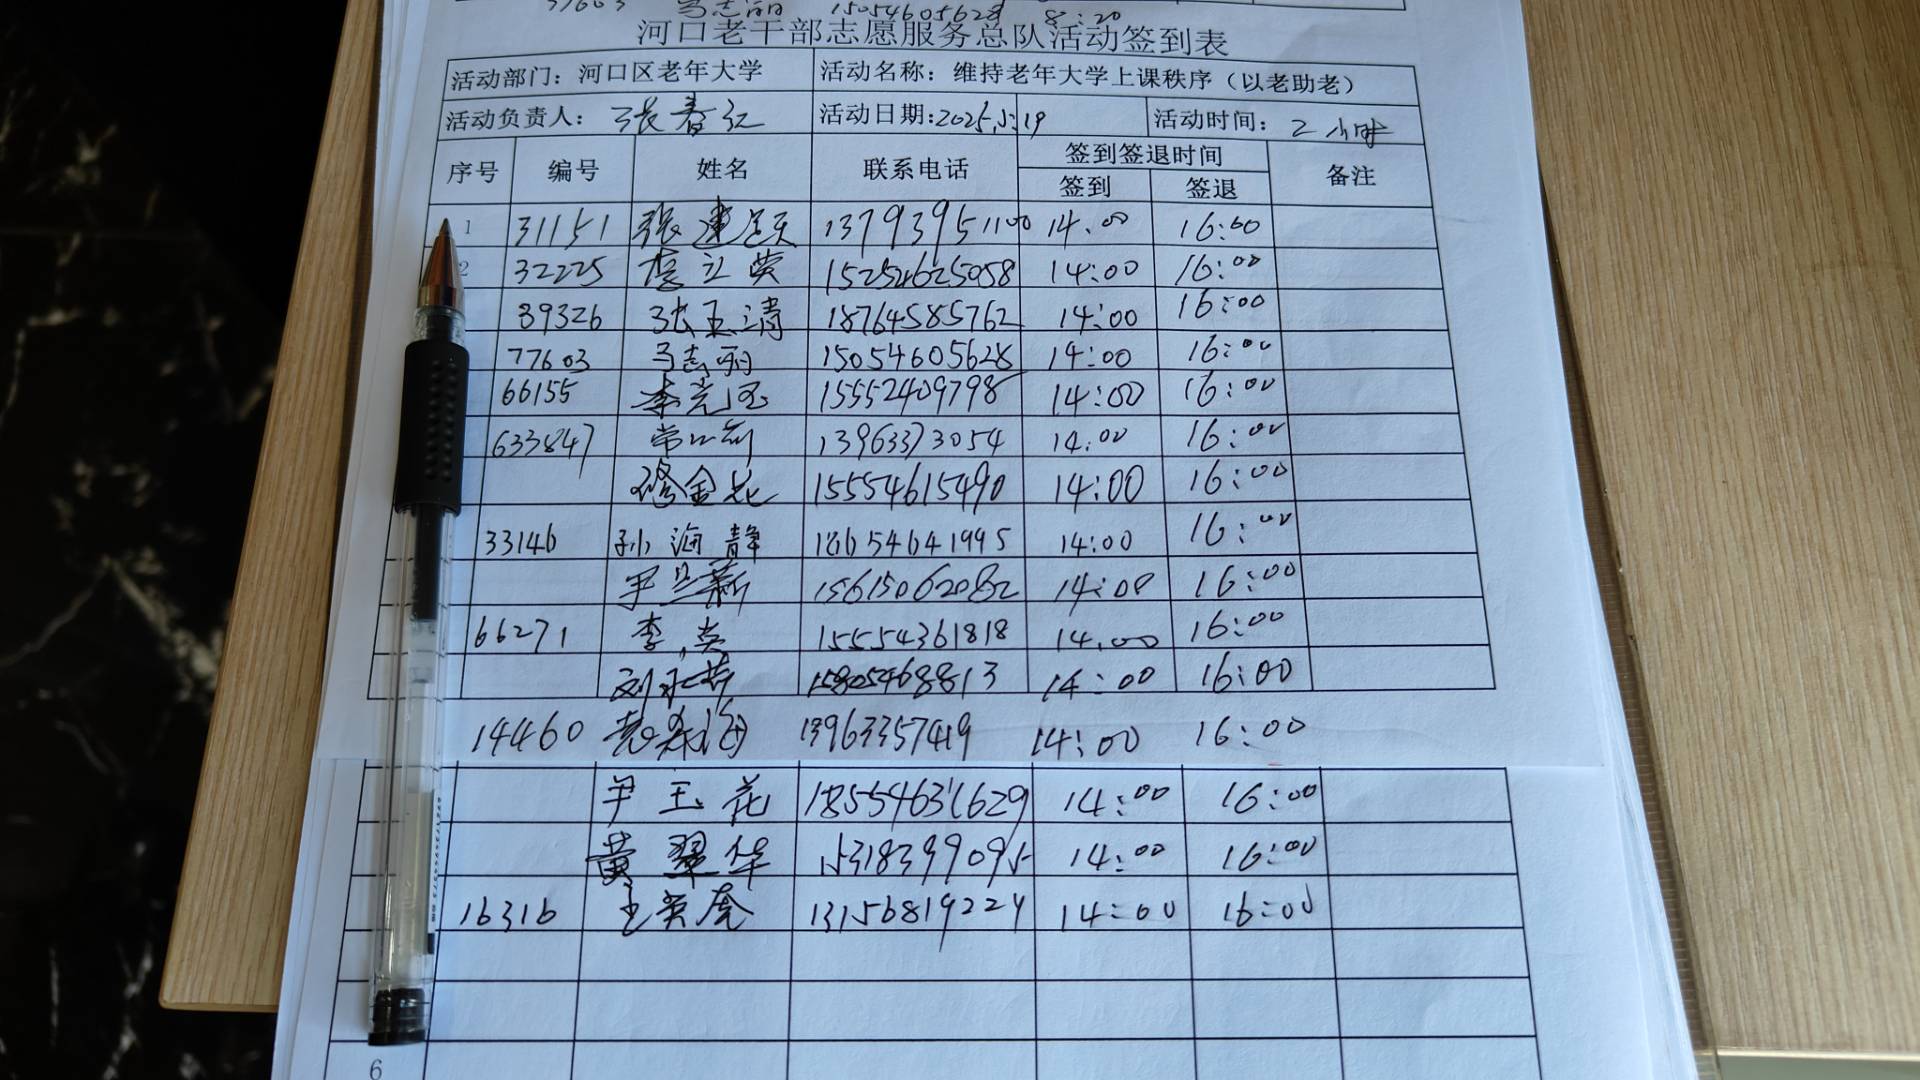 马志丽 15054605628 8:20
河口老干部志愿服务总队活动签到表
活动部门：河口区老年大学 活动名称：维持老年大学上课秩序（以老助老）
活动负责人：张春红 活动日期:2025.5.19 活动时间：2小时
序号 编号 姓名 联系电话 签到签退时间 备注
签到 签退
1 31151 张建 13793951100 14.00 16:00
2 32225 李立英 15254625058 14:00 16:00
39326 张玉清 18764585762 14:00 16:00
77603 马志丽 15054605628 14:00 16:00
66155 李光玉 15552409798 14:00 16:00
633847 常 13963373054 14:00 16:00
修金花 15554615490 14:00 16:00
33146 孙海静 18654641995 14:00 16:00
尹兰新 15615062082 14:00 16:00
66271 李英 15554361818 14.00 16:00
刘 15805468813 14:00 16:00
14460 海 13963357419 14:00 16:00
尹玉花 18554631629 14:00 16:00
黄翠华 15318399095 14:00 16:00
16316 王英奎 13156819224 14:00 16:00
6